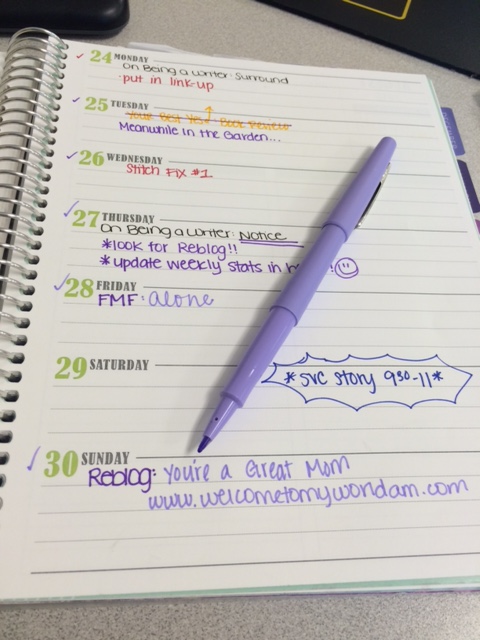 24 MONDAY
On Being a Writer: Surround
·put in link-up
25 TUESDAY
Your Best Yes Book Review
Meanwhile in the Garden...
26 WEDNESDAY
Stitch Fix #1
27 THURSDAY
On Being a Writer: Notice
*look for Reblog!!
*update weekly stats in
28 FRIDAY
FMF: alone
29 SATURDAY
*SVC Story 930-11*
30 SUNDAY
Reblog: You're a Great Mom
www.welcometomywondam.com